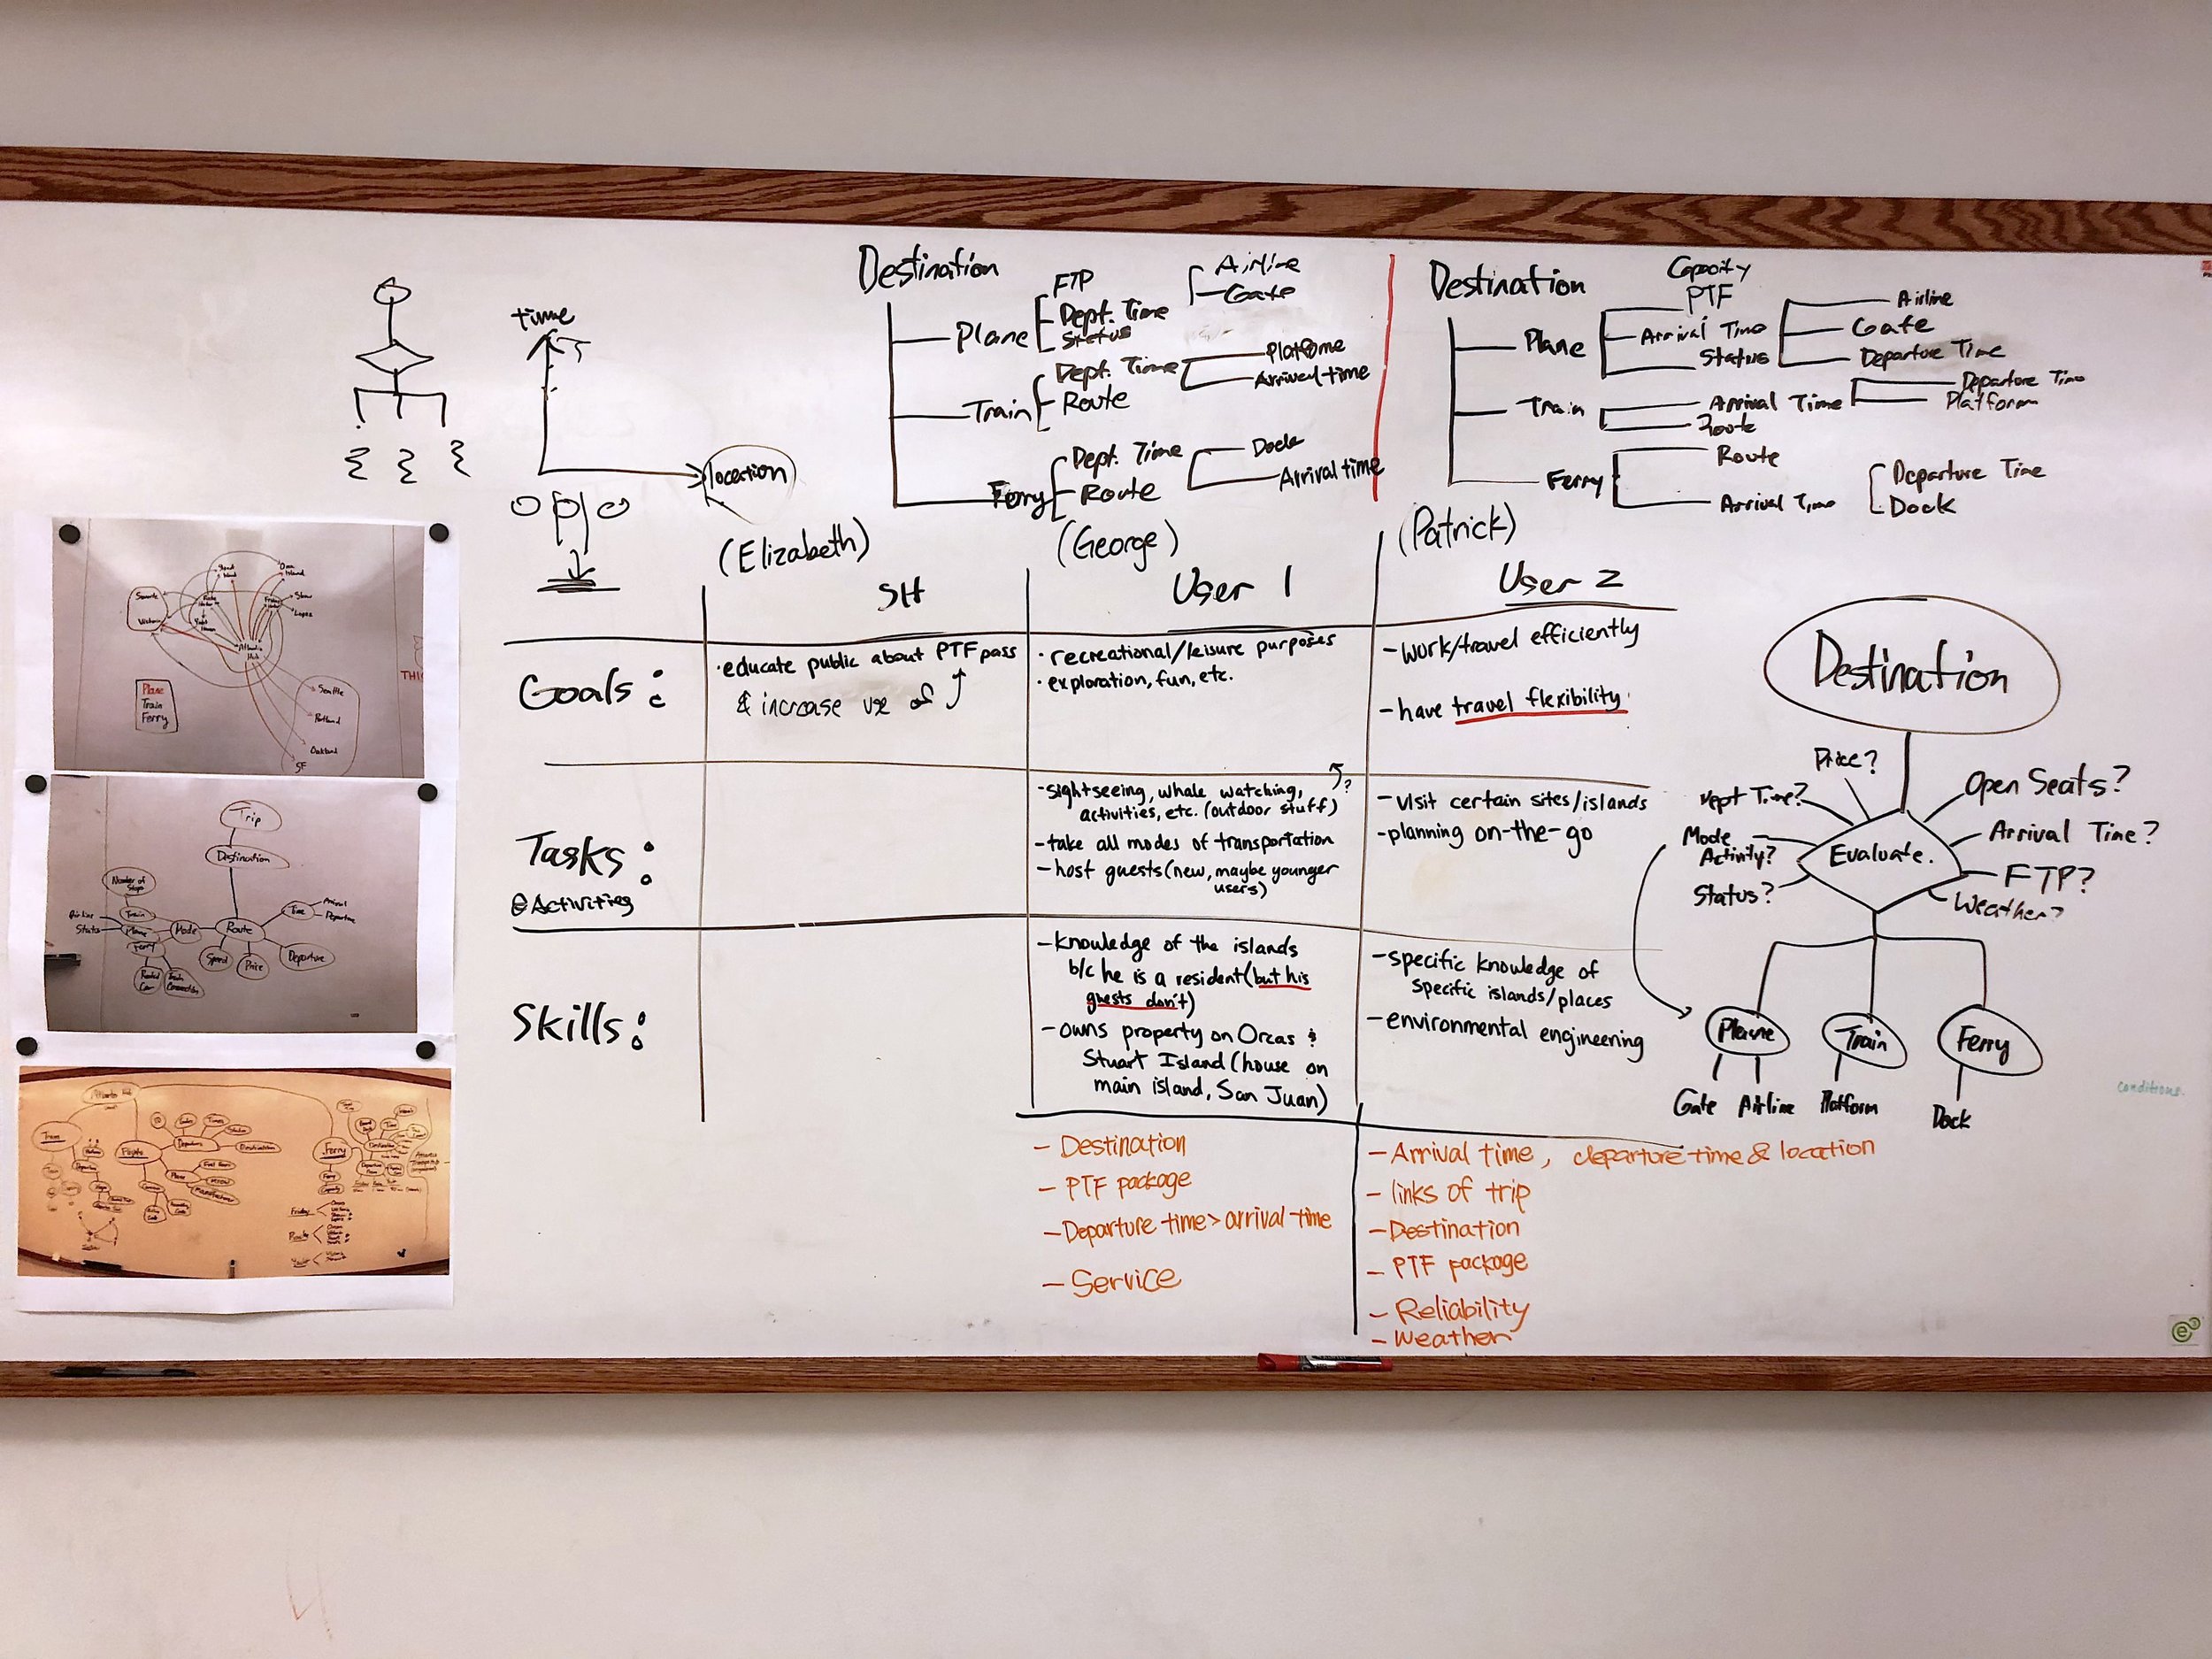 time
location
Destination
Plane
FTP
Dept. Time
Status
Airline
Gate
Train
Dept. Time
Route
Platfome
Arrival time
Ferry
Dept. Time
Route
Dock
Arrival time
Destination
Capacity
PTF
Plane
Arrival Time
Status
Airline
Gate
Departure Time
Train
Arrival Time
Route
Departure Time
Platform
Ferry
Route
Arrival Time
Departure Time
Dock
(Elizabeth)
(George)
(Patrick)
SH
User 1
User 2
Goals:
• educate public about PTF pass
& increase use of
• recreational/leisure purposes
• exploration, fun, etc.
- work/travel efficiently
- have travel flexibility
Tasks:
& Activities
- sightseeing, whale watching, ?
activities, etc. (outdoor stuff)
- take all modes of transportation
- host guests (new, maybe younger
users)
- visit certain sites/islands
- planning on-the-go
Skills:
- knowledge of the islands
b/c he is a resident (but his
guests don't)
- owns property on Orcas &
Stuart Island (house on
main island, San Juan)
- specific knowledge of
specific islands/places
- environmental engineering
- Destination
- PTF package
- Departure time > arrival time
- Service
- Arrival time, departure time & location
- links of trip
- Destination
- PTF package
- Reliability
- Weather
Destination
Price?
Dept Time?
Mode
Activity?
Status?
Evaluate.
Open Seats?
Arrival Time?
FTP?
Weather?
Plane
Train
Ferry
Gate
Airline
Platform
Dock
conditions
Lopez
Seattle
Portland
Oakland
SF
Plane
Train
Ferry
Trip
Destination
Number of
Stops
Train
Plane
Ferry
Mode
Route
Time
Arrival
Departure
Airline
Status
Speed
Price
Departure
Train
Ferry
Destination